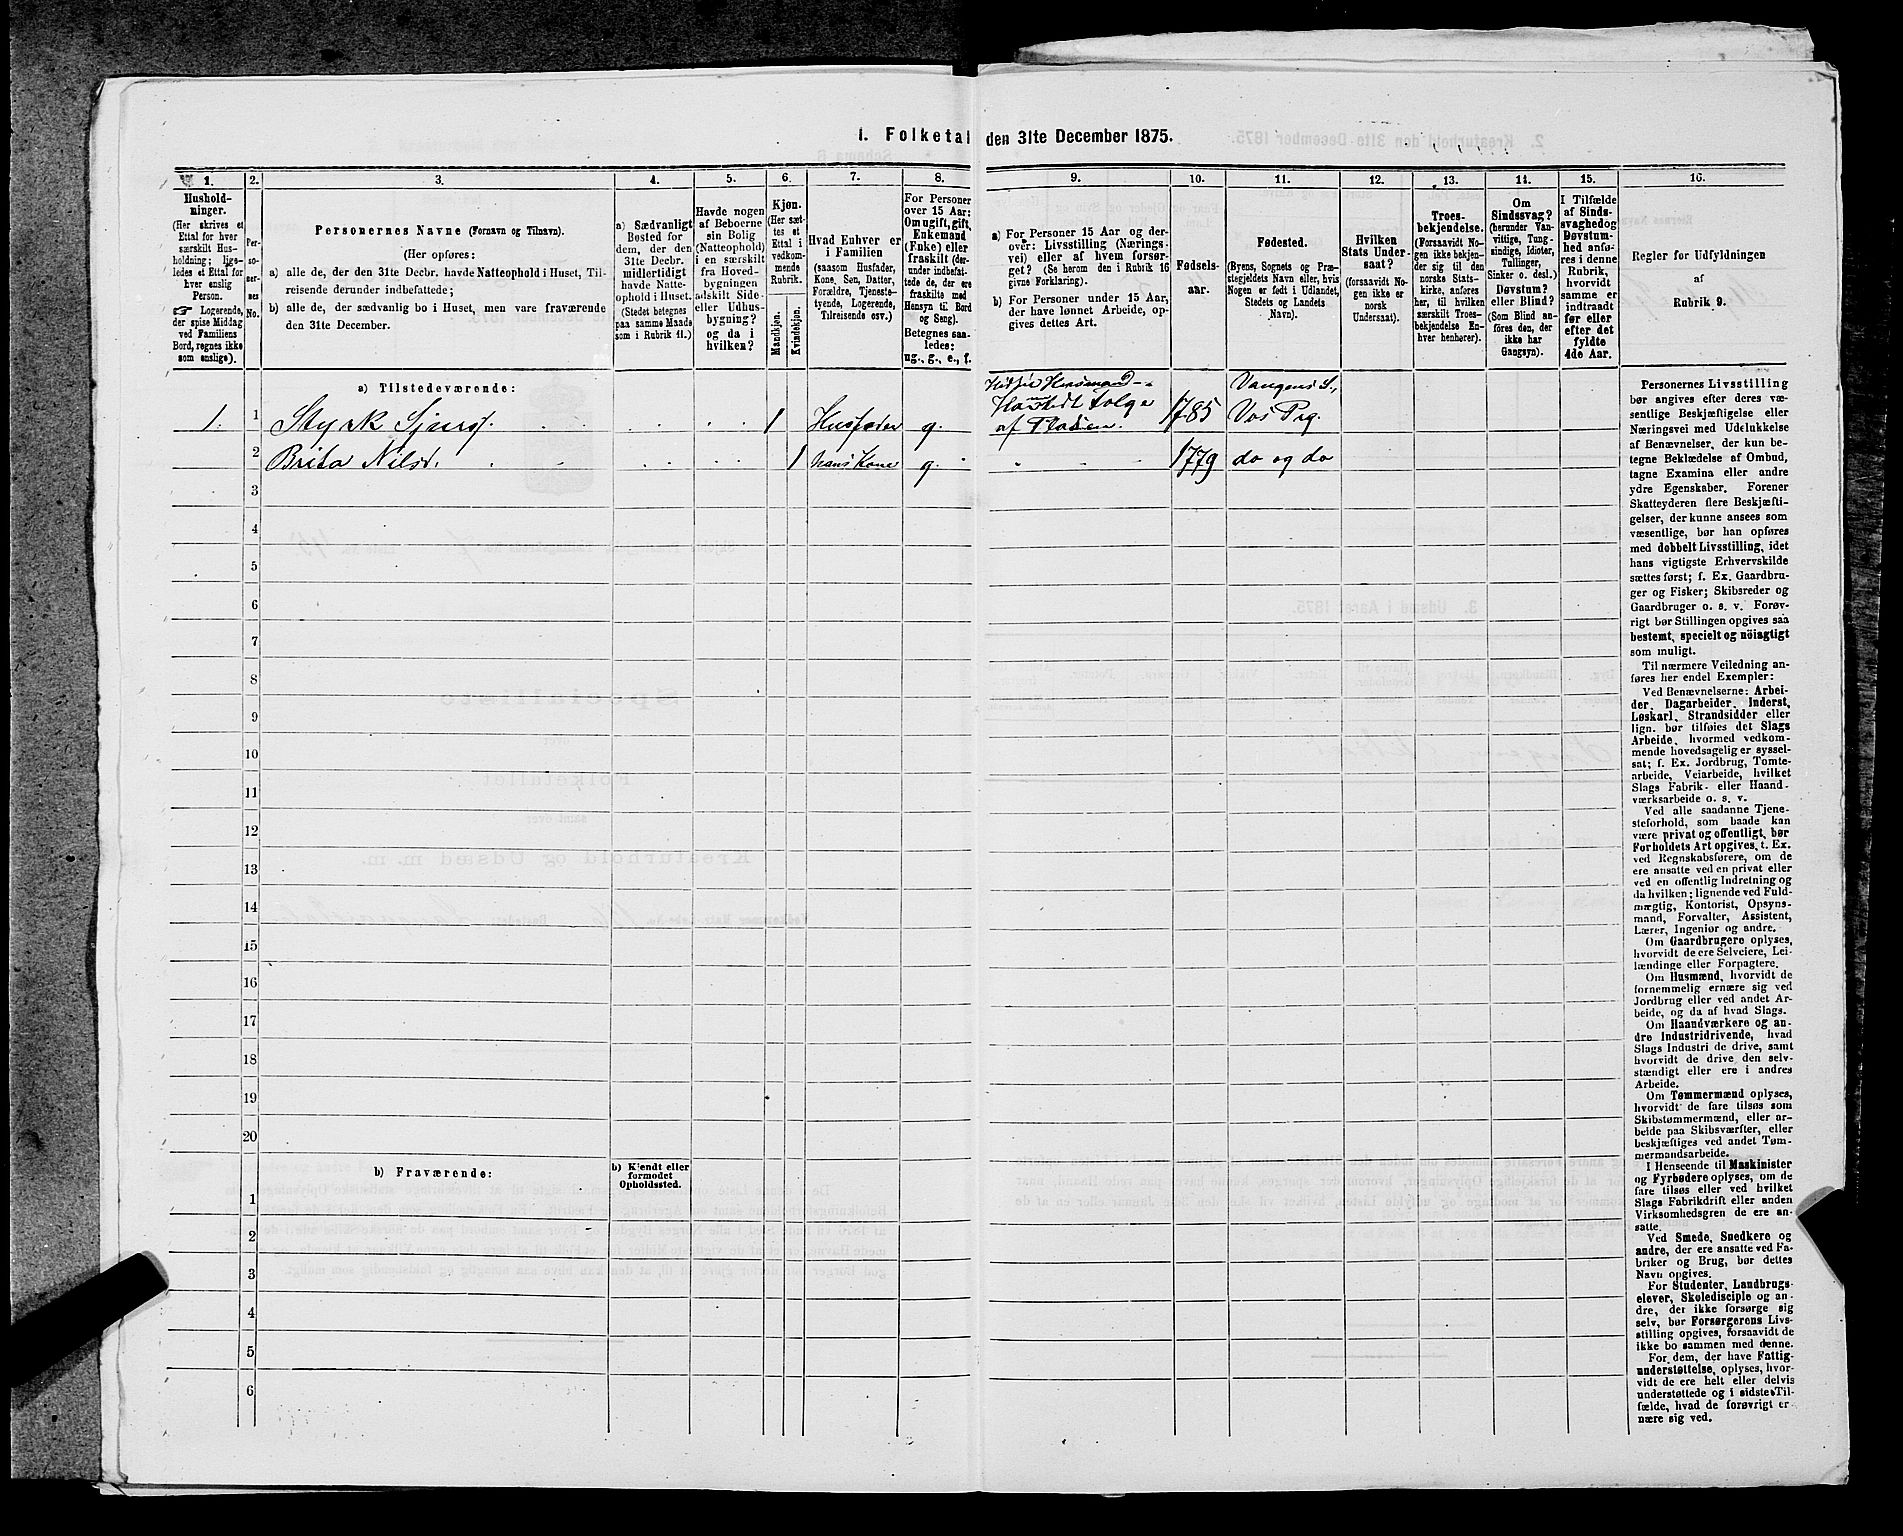 1. Folketal den 31te December 1875.
1.
Hushold-
ninger.
(Her skrives et
Ettal for hver
særskilt Hus-
holdning; lige-
ledes et Ettal for
hver enslig
Person.
☞ Logerende,
der spise Middag
ved Familiens
Bord, regnes ikke
som enslige).
2.
Per-
so-
ner-
nes
No.
3.
Personernes Navne (Fornavn og Tilnavn).
(Her opføres:
a) alle de, der den 31te Decbr. havde Natteophold i Huset, Til-
reisende derunder indbefattede;
b) alle de, der sædvanlig bo i Huset, men vare fraværende
den 31te December.
4.
a) Sædvanligt
Bosted for
dem, der den
31te Decbr.
midlertidigt
havde Natte-
ophold i Huset.
(Stedet betegnes
paa samme Maade
som i Rubrik 11.)
5.
Havde nogen
af Beboerne
sin Bolig
(Natteophold)
i en særskilt
fra Hoved-
bygningen
adskilt Side-
eller Udhus-
bygning?
og da i
hvilken?
6.
Kjøn.
(Her sæt-
tes et
Ettal i
vedkom-
mende
Rubrik.)
Mandkjøn.
Kvindekjøn.
7.
Hvad Enhver er
i Familien
(saasom Husfader,
Kone, Søn, Datter,
Forældre, Tjeneste-
tyende, Logerende,
Tilreisende osv.)
8.
For Personer
over 15 Aar:
Om ugift, gift,
Enkemand
(Enke) eller
fraskilt (der-
under indbefat-
tede de, der ere
fraskilte med
Hensyn til Bord
og Seng).
Betegnes saa-
ledes:
ug., g., e., f.
9.
a) For Personer 15 Aar og der-
over: Livsstilling (Nærings-
vei) eller af hvem forsør-
get? (Se herom den i Rubrik 16
givne Forklaring).
b) For Personer under 15 Aar,
der have lønnet Arbeide, op-
gives dettes Art.
10.
Fødsels-
aar.
11.
Fødested.
(Byens, Sognets og Præ-
stegjeldets Navn eller, hvis
Nogen er født i Udlandet,
Stedets og Landets
Navn).
12.
Hvilken
Stats Under-
saat?
(forsaavidt No-
gen ikke er
norsk
Undersaat).
13.
Troes-
bekjendelse.
(Forsaavidt No-
gen ikke bekjen-
der sig til den
norske Stats-
kirke, anføres
her, til hvilken
særskilt Troes-
bekjendelse En-
hver henhører).
14.
Om
Sindssvag?
(herunder Van-
vittige, Tung-
sindige, Idioter,
Tullinger,
Sinker o. desl.)
Døvstum?
eller Blind?
(Som Blind an-
føres den, der
ikke har
Gangsyn).
15.
I Tilfælde
af Sinds-
svaghed og
Døvstum-
hed anfø-
res i denne
Rubrik,
hvorvidt
samme er
indtraadt
før eller
efter det
fyldte
4de Aar.
16.
Regler for Udfyldningen
af
Rubrik 9.
a) Tilstedeværende:
1. 1 Styrk Sjurs. 1 Husfader g. Husmand af 1785 Vangens S., Vos Pg.
2 Brita Nilsd. 1 hans Kone g. 1779 do og do
3
4
5
6
7
8
9
10
11
12
13
14
15
16
17
18
19
20
b) Fraværende:
b) Kjendt eller
formodet
Opholdssted.
1
2
3
4
5
6
Personernes Livsstilling
bør angives efter deres væ-
sentlige Beskjæftigelse eller
Næringsvei med Udelukkelse
af Benævnelser, der kun be-
tegne Beklædelse af Ombud,
tagne Examina eller andre
ydre Egenskaber. Forener
Skatteyderen flere Beskjæfti-
gelser, der kunne ansees som
væsentlige, bør han opføres
med dobbelt Livsstilling, idet
hans vigtigste Erhvervskilde
sættes først; f. Ex. Gaardbru-
ger og Fisker; Skibsreder og
Gaardbruger o. s. v. Forøv-
rigt bør Stillingen opgives saa
bestemt, specielt og nöiagtigt
som muligt.
Til nærmere Veiledning an-
føres her endel Exempler:
Ved Benævnelserne: Arbei-
der, Dagarbeider, Inderst,
Løskarl, Strandsidder eller
lign. bør tilføies det Slags
Arbeide, hvormed vedkom-
mende hovedsagelig er syssel-
sat; f. Ex. Jordbrug, Tomte-
arbeide, Veiarbeide, hvilket
Slags Fabrik- eller Haand-
værksarbeide o. s. v.
Ved alle saadanne Tjene-
steforhold, som baade kan
være privat og offentligt, bør
Forholdets Art opgives, t. Ex.
ved Regnskabsførere, om de
ere ansatte ved en privat eller
ved en offentlig Indretning og
da hvilken; lignende ved Fuld-
mægtig, Kontorist, Opsyns-
mand, Forvalter, Assistent,
Lærer, Ingeniør og andre.
Om Gaardbrugere oplyses,
hvorvidt de ere Selveiere, Lei-
lændinge eller Forpagtere.
Om Husmænd, hvorvidt de
fornemmelig ernære sig ved
Jordbrug eller ved andet Ar-
beide, og da af hvad Slags.
Om Haandværkere og an-
dre Industridrivende, hvad
Slags Industri de drive, samt
hvorvidt de drive den selv-
stændigt eller ere i andres
Arbeide.
Om Tømmermænd oplyses,
hvorvidt de fare tilsøs som
Skibstømmermænd, eller ar-
beide paa Skibsværfter, eller
beskjæftiges ved andet Tøm-
mermandsarbeide.
I Henseende til Maskinister
og Fyrbødere oplyses, om de
fare tilsøs eller ved hvilket
Slags Fabrikdrift eller anden
Virksomhedsgren de ere an-
satte.
Ved Smede, Snedkere og
andre, der ere ansatte ved Fa-
briker og Brug, bør dettes
Navn opgives.
For Studenter, Landbrugs-
elever, Skoledisciple og an-
dre, der ikke forsørge sig
selv, bør Forsørgerens Livs-
stilling opgives, forsaavidt de
ikke bo sammen med denne.
For dem, der have Fattig-
understøttelse, oplyses, hvor-
vidt de ere helt eller delvis
understøttede og i sidste Til-
fælde, hvad de forøvrigt er-
nære sig ved.